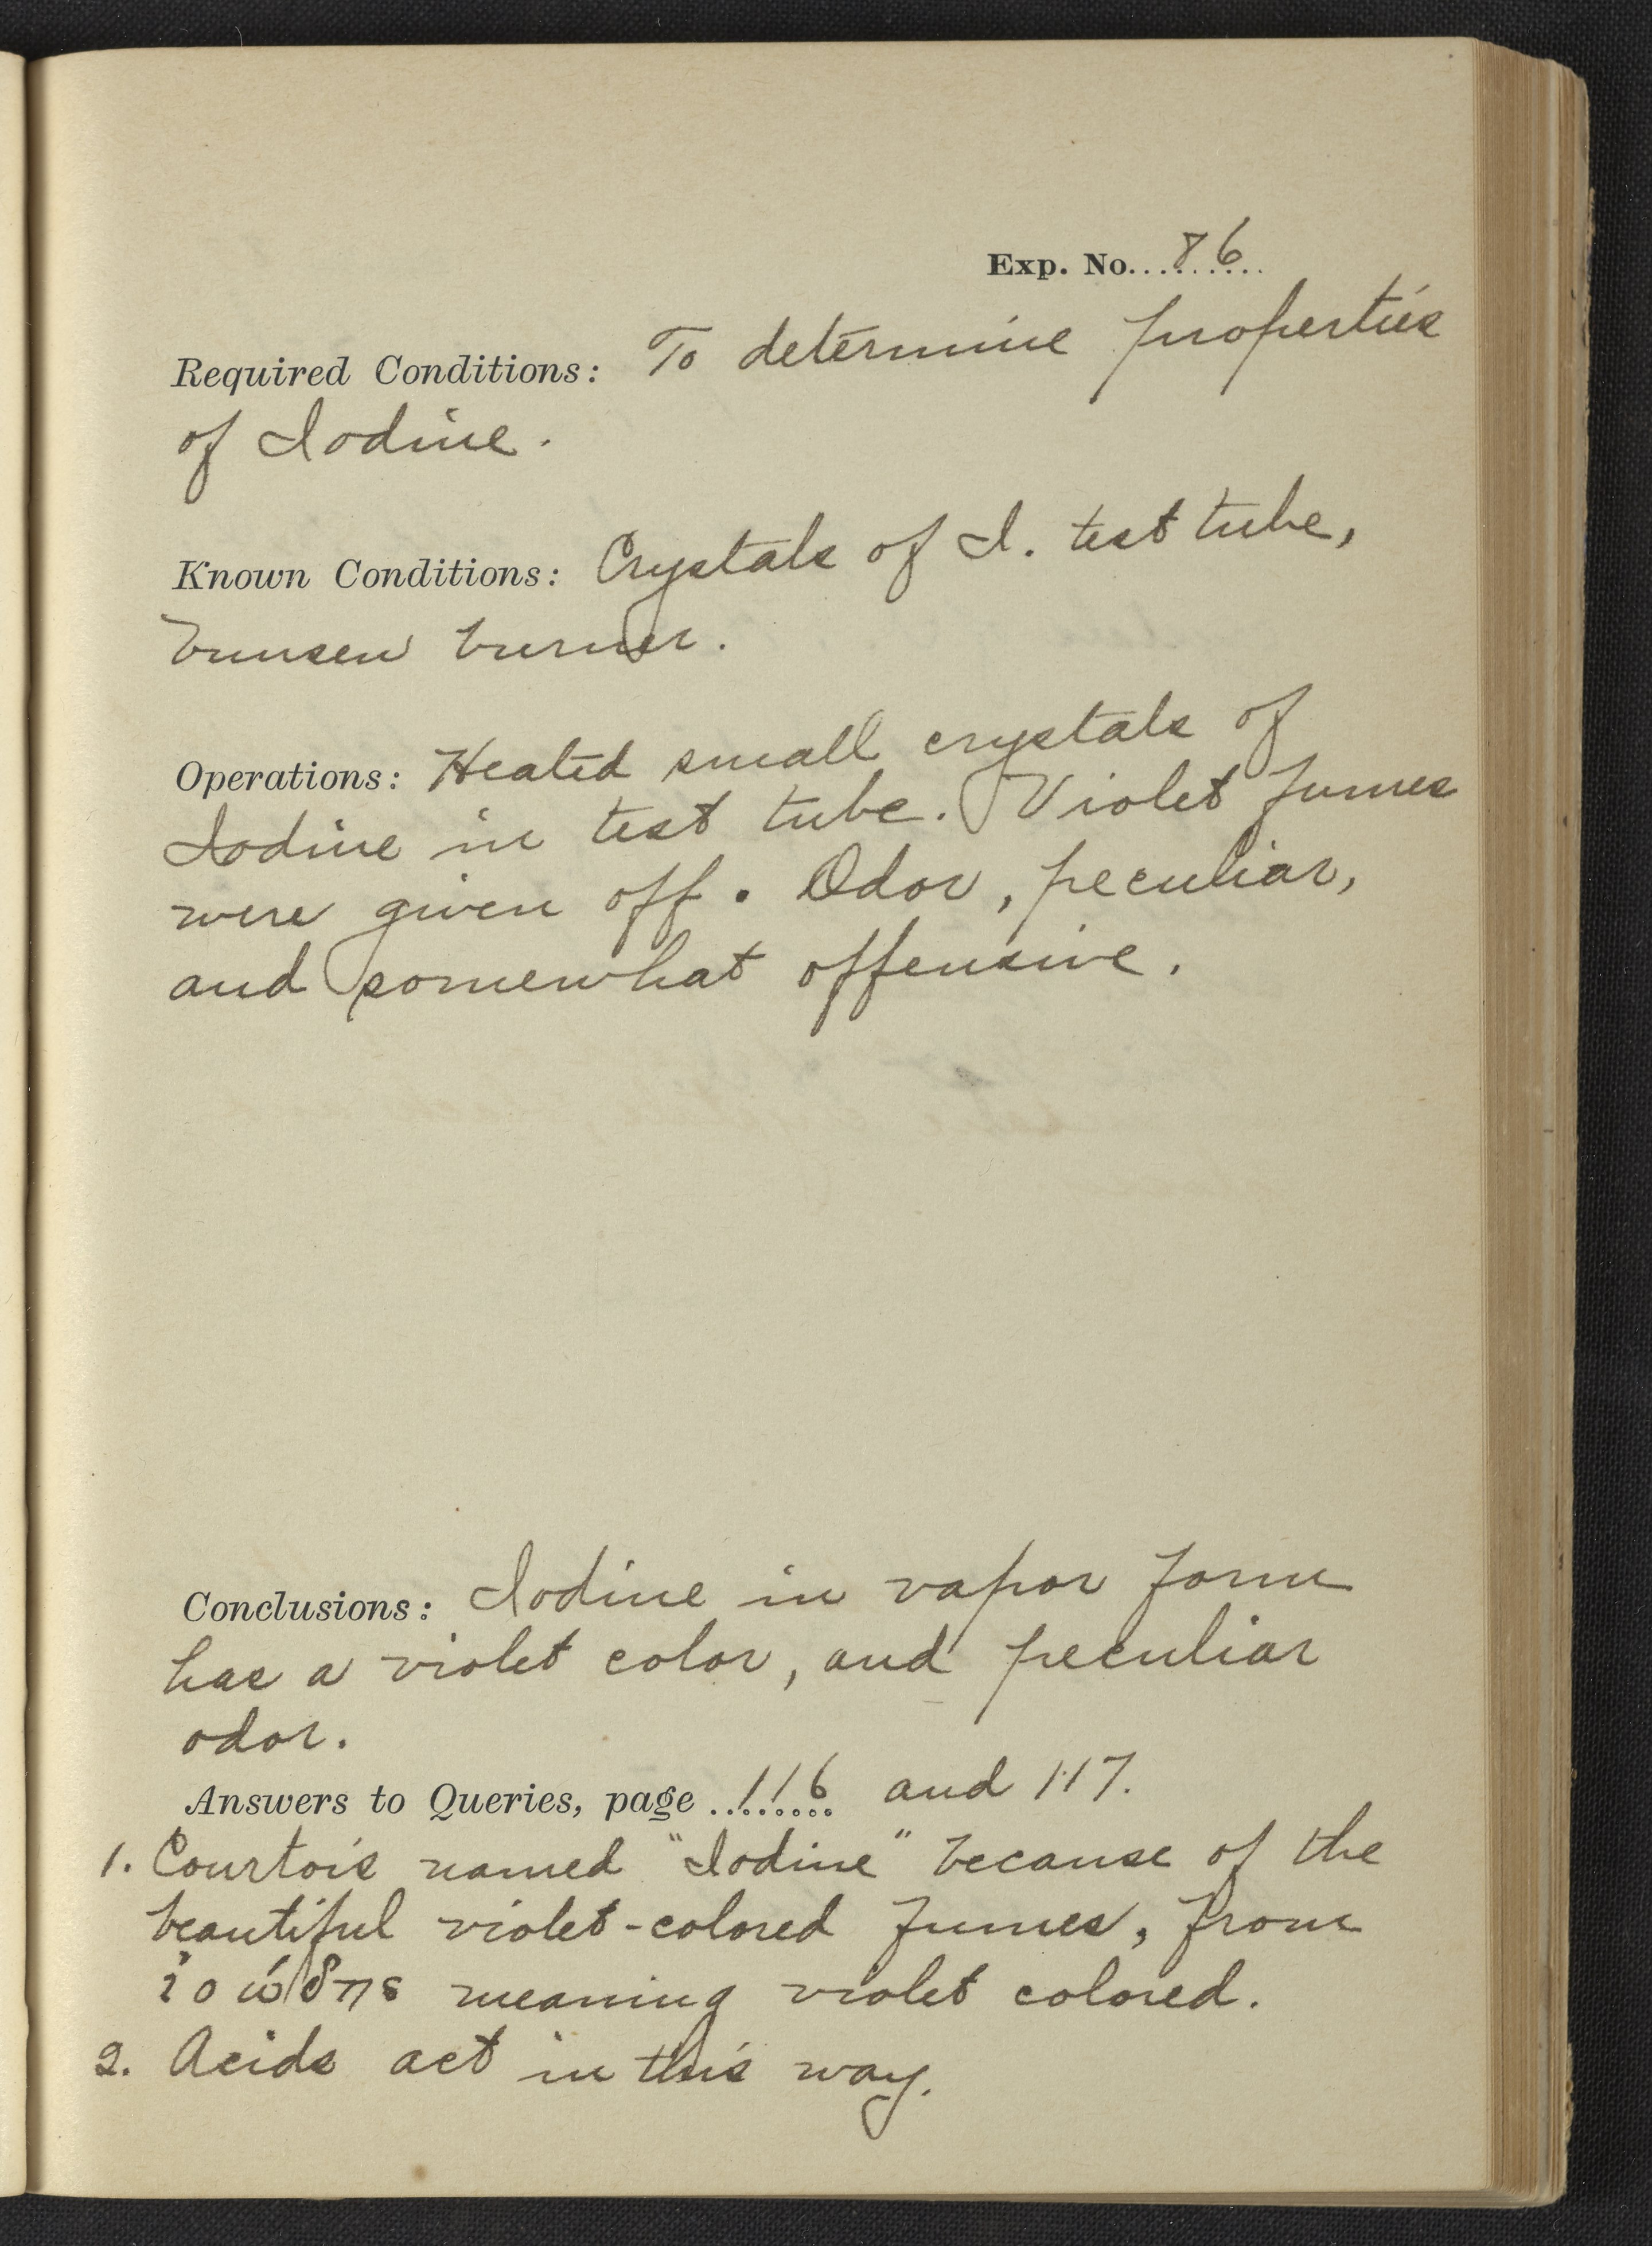 Exp. No. 86
Required Conditions: To determine properties
of Iodine.
Known Conditions: Crystals of I. test tube,
bunsen burner.
Operations: Heated small crystals of
Iodine in test tube. Violet fumes
were given off. Odor, peculiar,
and somewhat offensive.
Conclusions: Iodine in vapor form
has a violet color, and peculiar
odor.
Answers to Queries, page 116 and 117.
1. Courtois named "Iodine" because of the
beautiful violet-colored fumes, from
ἰοώδης meaning violet colored.
2. Acids act in this way.